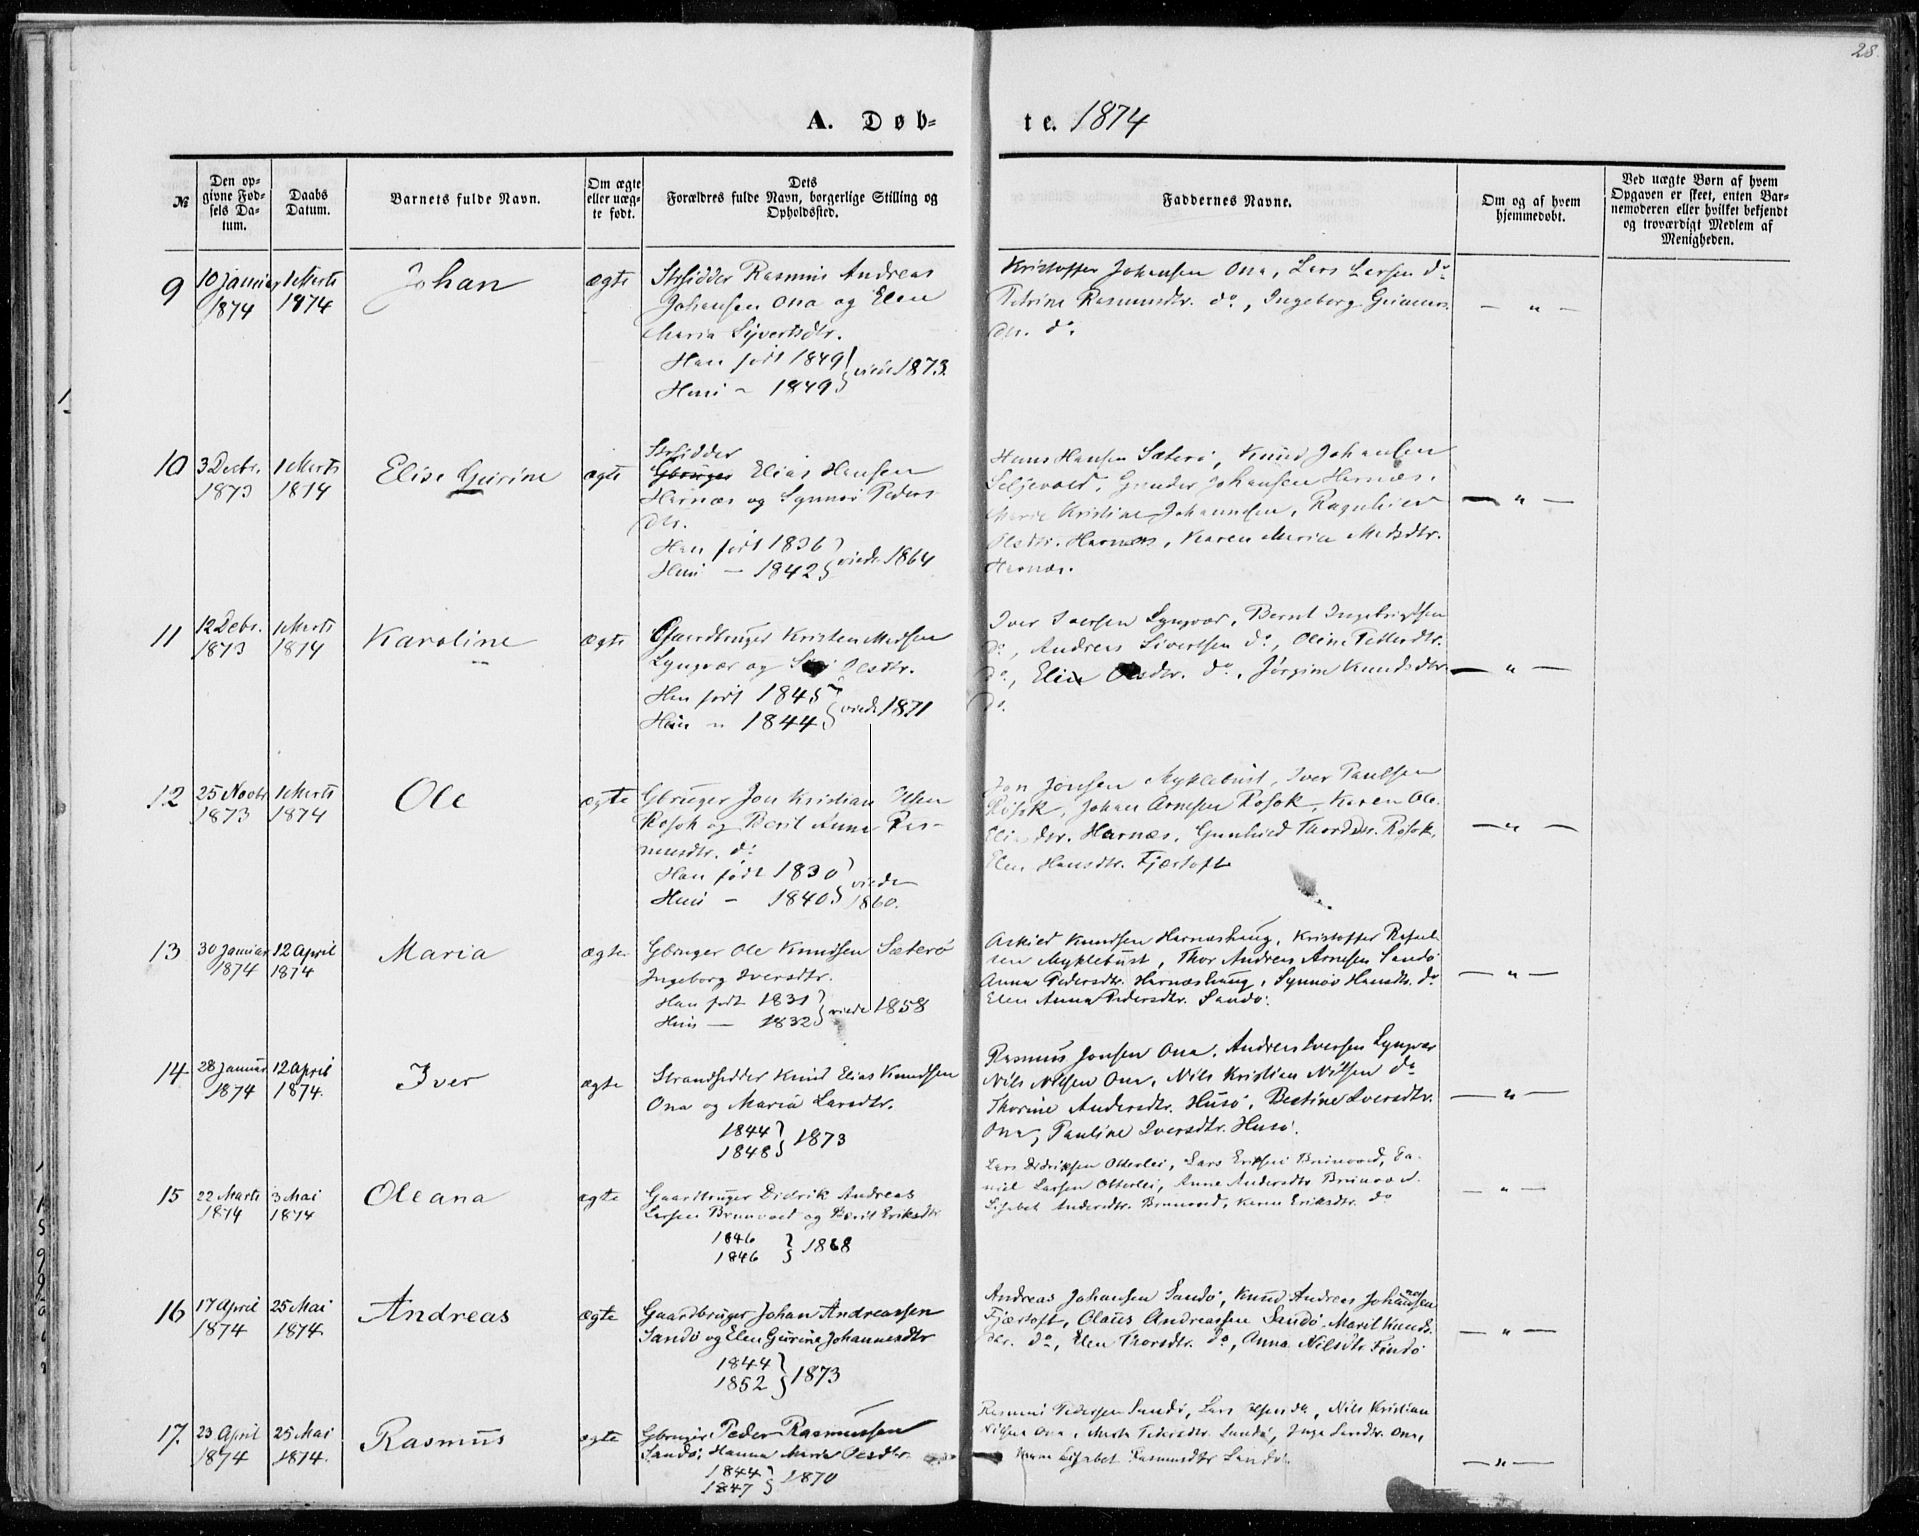 28.
A. Døb-
te. 1874
№
Den op-
givne Fød-
sels Da-
tum.
Daabs
Datum.
Barnets fulde Navn.
Om ægte
eller uæg-
te født.
Dets
Forældres fulde Navn, borgerlige Stilling og
Opholdssted.
Faddernes Navne.
Om og af hvem
hjemmedøbt.
Ved uægte Børn af hvem
Opgaven er skeet, enten Bar-
nemoderen eller hvilket bekjendt
og troværdigt Medlem af
Menigheden.
9
10 Januar
1874
1 Marts
1874
Johan
ægte
Strsidder Rasmus Andreas
Johansen Ona og Elen
Maria Syvertsdtr.
Han født 1849
Hun " 1849
viede 1873.
Kristoffer Johansen Ona, Lars Larsen do
Petrine Rasmusdtr. do, Ingeborg
dtr. do
— " —
10
3 Decbr.
1873
1 Marts
1874
Elise Gurine
ægte
Strsidder
Gbruger Elias Hansen
Harnæs og Synnøv Peders
dtr.
Han født 1836
Hun — 1842
viede 1864
Hans Hansen Sæterø, Knud Johansen
Seljevold, Gunder Johansen Harnæs,
Marie Kristine Johannsen, Ragnhild
Olsdtr. Harnæs, Karen Maria Madsdtr.
Harnæs.
— " —
11
12 Debr.
1873
1 Marts
1874
Karoline
ægte
Gaardbruger Kristen Madsen
Lyngvær og Olsdtr.
Han født 1845
Hun " 1844
viede 1871
Iver Iversen Lyngvær, Bernt Ingebrigtsen
do, Andreas Sivertsen do, Oline Pettersdtr.
do, Elin Olsdtr. do, Jørgine Knudsdtr.
do.
— " —
12
25 Novbr
1873
1 Marts
1874
Ole
ægte
Gbruger Jon Kristian Olsen
Rosok og Berit Anna Ras-
musdtr. do
Han født 1830
Hun — 1840
viede
1860.
Jon Jonsen Myklebust, Iver Paulsen
Rosok, Johan Arnesen Rosok, Karen Ole
dtr. Harnæs, Gunhild Thordsdtr. Rosok,
Elen Hansdtr. Fjærtoft
— " —
13
30 Januar
1874
12 April
1874
Maria
ægte
Gbruger Ole Knudsen Sæterø
Ingeborg Iversdtr.
Han født 1831
Hun — 1832
viede 1858
Knudsen Harnæshaug, Kristoffer Rafael-
sen Myklebust, Thor Andreas Arnesen Sandø
Anna Pedersdtr. Harnæshaug, Synnøv Hansdtr. do
Elen Anna Pedersdtr. Sandø.
— " —
14
28 Januar
1874
12 April
1874.
Iver
ægte
Strandsidder Knud Elias Knudsen
Ona og Maria Larsdtr.
1844
1848
1873
Rasmus Jonsen Ona, Andreas Iversen Lyngvær
Nils Nilsen Ona, Nils Kristian Nilsen do
Thorine Andersdtr. Husø, Bestine Iversdtr.
Ona, Pauline Iversdtr. Husø.
— " —
15
22 Marts
1874
3 Mai
1874
Oleana
ægte
Gaardbruger Didrik Andreas
Larsen Brunvold og Berit Eriksdtr
1846
1846
1868
Lars Didriksen Otterlei, Lars Eriksen Brunvold, Da-
niel Larsen Otterlei, Anne Andersdtr Brunvold,
Lisabet Andersdtr. Brunvold, Karen Eriksdtr. do
— " —
16
17 April
1874
25 Mai
1874.
Andreas
ægte
Gaardbruger Johan Andreassen
Sandø og Elen Gurine Johannesdtr
1844
1852
1873
Andreas Johansen Sandø, Knud Andreas Johannessen
Fjærtoft, Olaus Andreassen Sandø, Marit Knuds-
dtr. do, Elen Thorsdtr. do, Anna Nilsdtr Findø
— " —
17.
23 April
1874
25 Mai
1874.
Rasmus
ægte
Gbruger Peder Rasmussen
Sandø, Hanna Maria Olsdtr.
1844
1847
1870
Rasmus Pedersen Sandø, Lars Olsen do, Nils Kristian
Nilsen Ona, Marta Pedersdtr. Sandø, Inga Larsdtr. Ona,
Lisabet Rasmusdtr Sandø.
— " —